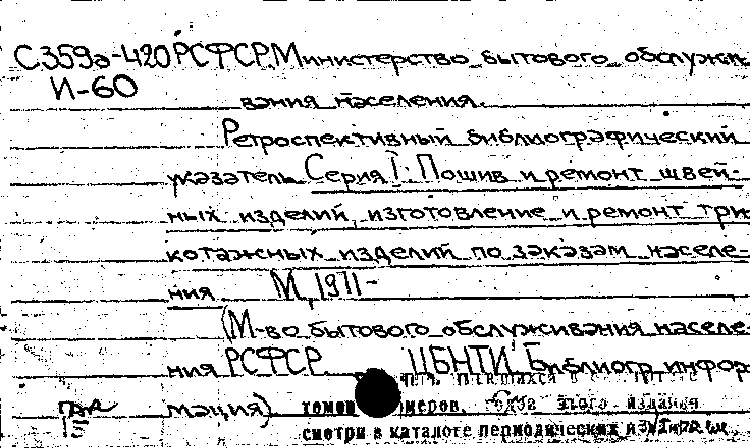 С359а-420 РСФСР. Министерство бытового обслужи
И-60
вания населения.
Ретроспективный библиографический
указатель. Серия I. Пошив и ремонт швей-
ных изделий, изготовление и ремонт три
котажных изделий по заказам населе-
ния М, 1971-
(М-во бытового обслуживания населе
ния РСФСР. ЦБНТИ. Библиогр. инфор
мация)
томов номеров, годов этого издания
смотри в каталоге периодических изданий